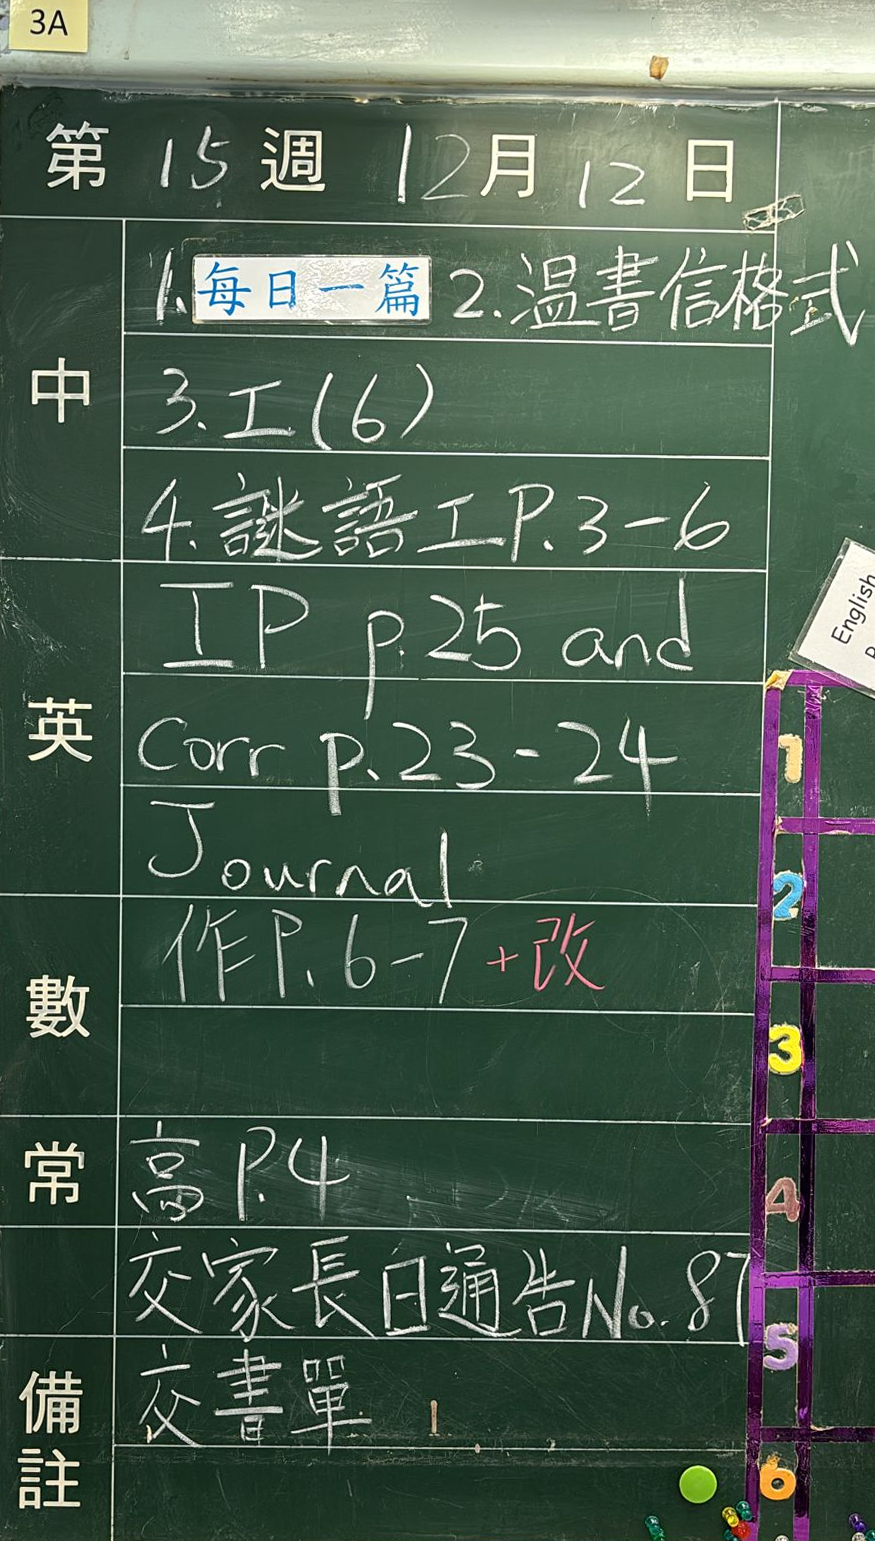 3A
第 15 週 12 月 12 日
中
1. 每日一篇 2. 溫書信格式
3. 工(6)
4. 謎語工P.3-6
英
IP p.25 and
Corr p.23-24
Journal
English
數
作P.6-7 +改
常
高 P.4
交家長日通告No.87
備註
交書單
1
2
3
4
5
6